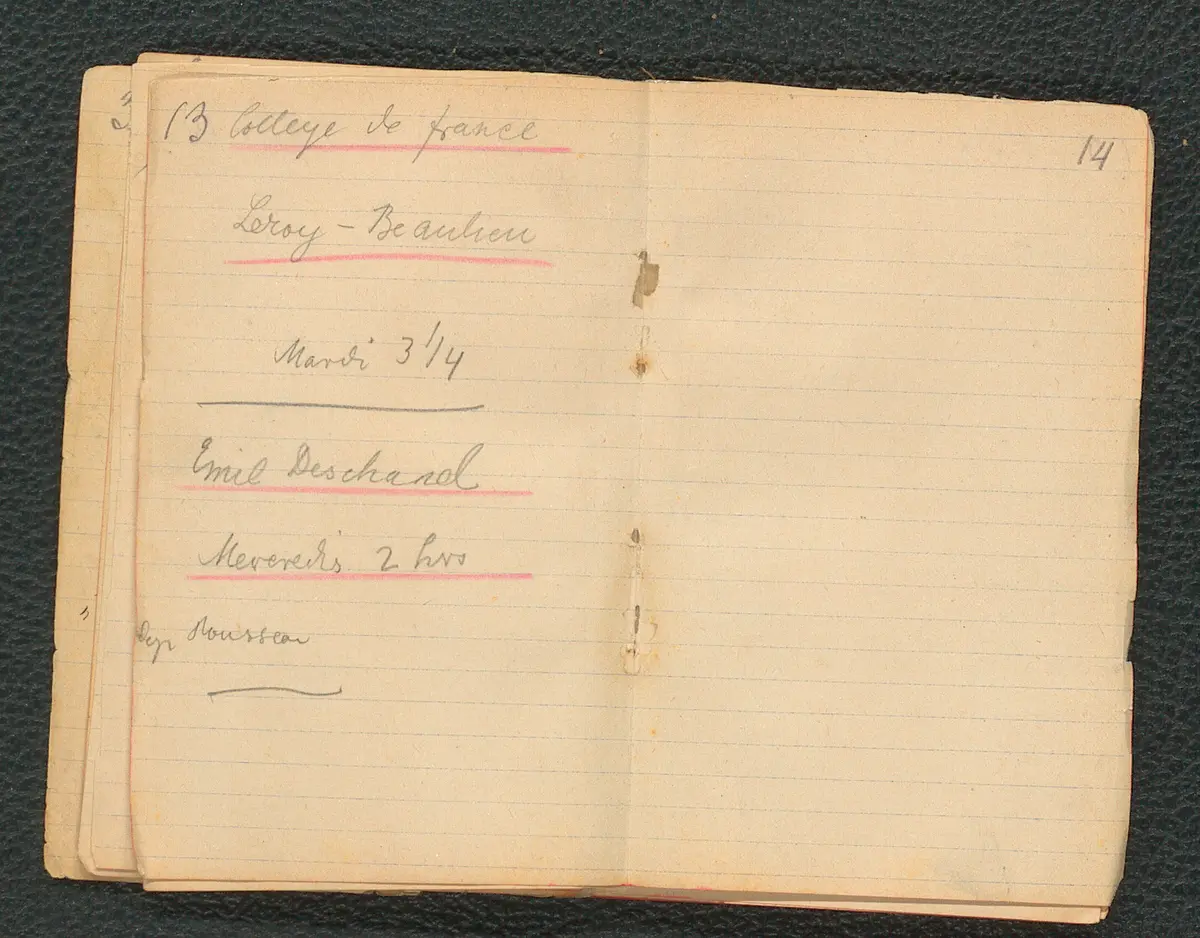 13 College de france
14
Leroy - Beaulieu
Mardi 3 1/4
Emil Deschanel
Mercredis 2 hrs
Rousseau